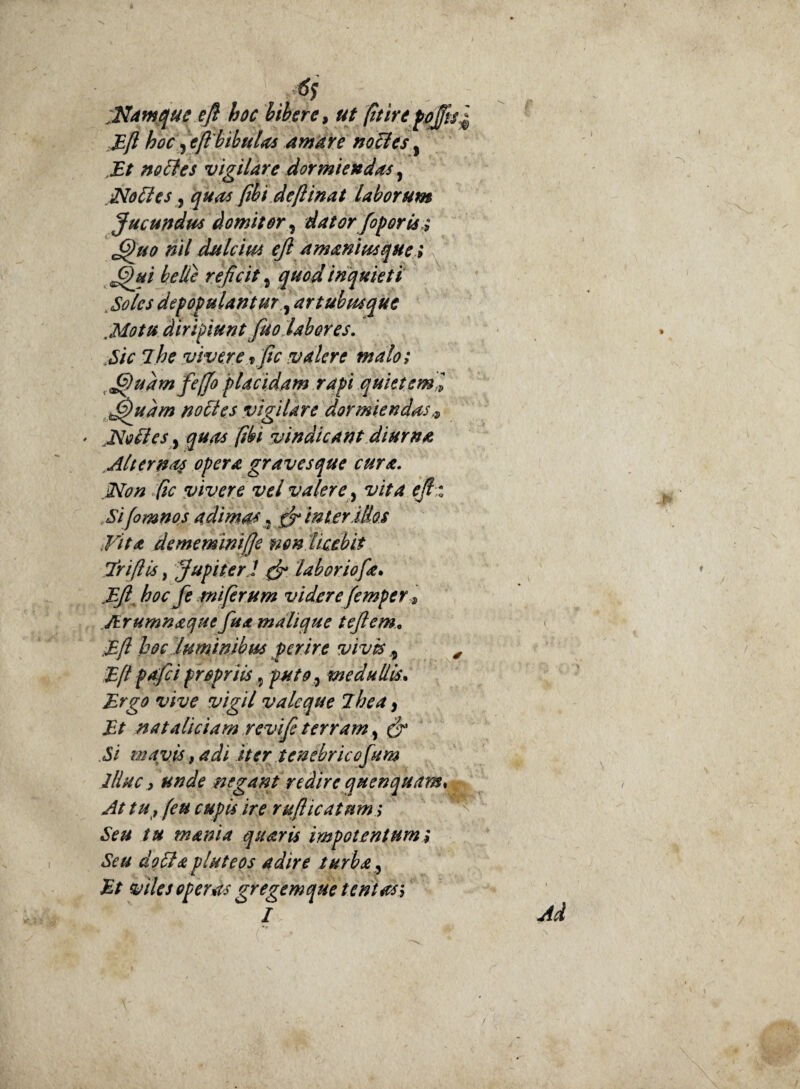 65
Namque eſt hoc bibere, ut ſitire poſſis;
Eſt hoc, eſt bibulas amare noctes,
Et noctes vigilare dormiendas,
Noctes, quas ſibi deſtinat laborum
Jucundus domitor, dator ſoporis;
Quo nil dulcius eſt amæniusque;
Qui belle reficit, quod inquieti
Soles depopulantur, artubusque
Motu diripiunt ſuo labores.
Sic The vivere, ſic valere malo;
Quàm feſſo placidam rapi quietem,
Quàm noctes vigilare dormiendas,
Noctes, quas ſibi vindicant diurnæ
Alternas operæ gravesque curæ.
Non ſic vivere vel valere, vita eſt:
Si ſomnos adimas, & inter illos
Vitæ dememiniſſe non licebit
Triſtis, Jupiter! & laborioſæ.
Eſt hoc ſe miſerum videre ſemper,
Ærumnæque ſuæ malique teſtem.
Eſt hoc luminibus perire vivis,
Eſt paſci propriis, puto, medullis.
Ergo vive vigil valeque Thea,
Et nataliciam reviſe terram, &
Si mavis, adi iter tenebricoſum
Illuc, unde negant redire quenquam.
At tu, ſeu cupis ire ruſticatum;
Seu tu mænia quæris impotentum;
Seu doctæ pluteos adire turbæ,
Et viles operas gregemque tentas;
I
Ad